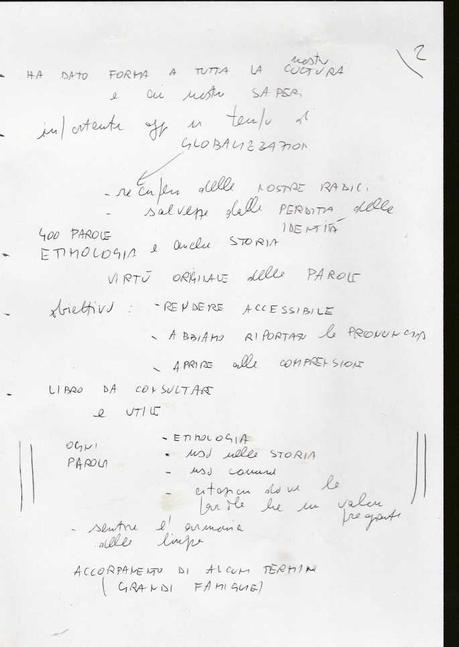 2
- HA DATO FORMA A TUTTA LA nostra CULTURA
e ai nostri SAPERI
importante oggi in tempi di
GLOBALIZZATION
- recupero delle NOSTRE RADICI
- salvezza dalla PERDITA delle
IDENTITÀ
400 PAROLE
- ETIMOLOGIA e anche STORIA
VIRTÙ ORIGINALE delle PAROLE
- obiettivo : - RENDERE ACCESSIBILE
- ABBIAMO RIPORTATO le PRONUNCIA
- APRIRE alle COMPRENSIONE
- LIBRO DA CONSULTARE
e UTILE
OGNI PAROLA
- ETIMOLOGIA
- uso nelle STORIA
- uso comune
- citazioni dove le
parole ha un valore
pregnante
- sentire l'armonia
delle lingue
ACCORPAMENTO DI ALCUNI TERMINI
(GRANDI FAMIGLIE)